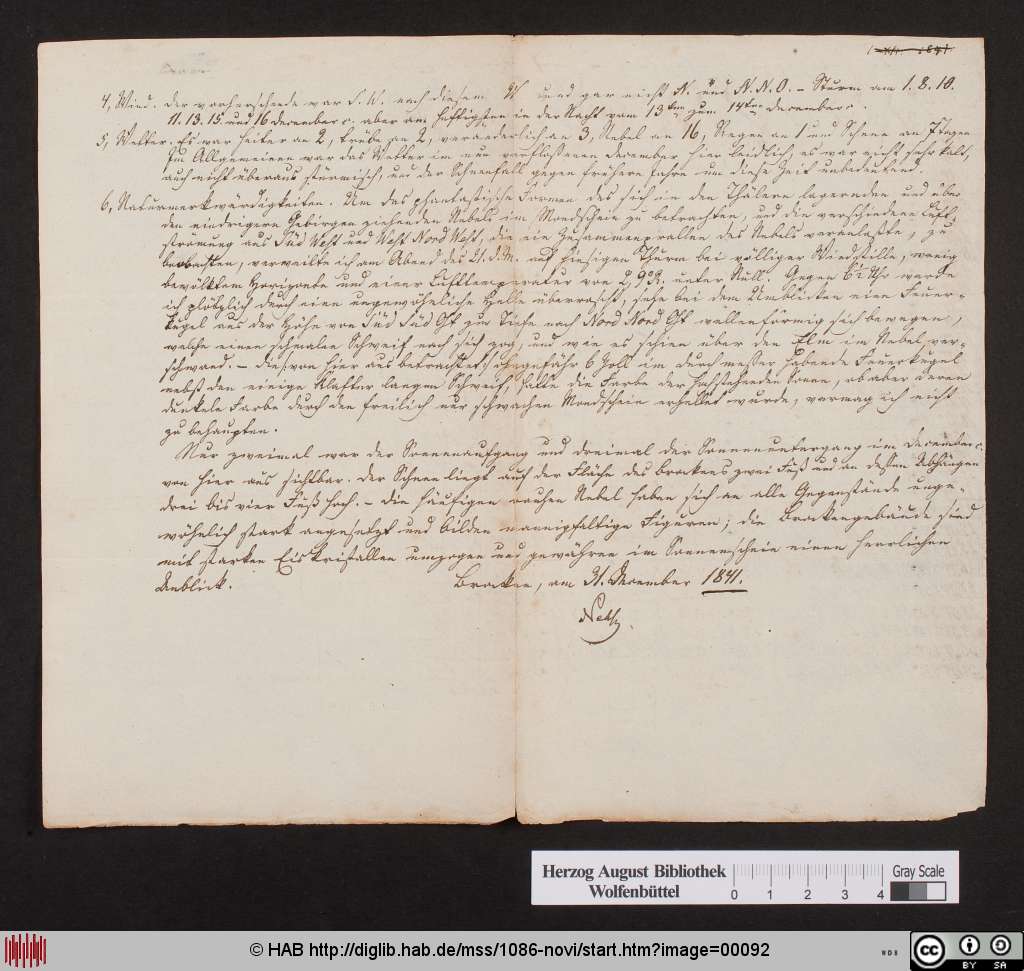 4, Wind. Der vorherschende war S. W. nach diesem W und gar nicht N. und N. N. O. – Sturm am 1. 8. 10.
11. 13. 15. und 16 December c. aber am heftigsten in der Nacht vom 13ten zum 14ten December c.
5, Wetter. Es war heiter an 2, trübe an 2, veränderlich an 3, Nebel an 16, Regen an 1 und Schnee an 7 Tagen
Im Allgemeinen war das Wetter im nun verflossenen December hier leidlich, es war nicht sehr kalt,
auch nicht überaus stürmisch, und der Schneefall gegen frühere Jahre um diese Zeit unbedeutend.
6, Naturmerkwürdigkeiten. Um das phantastische Formen des sich in den Thälern lagernden und über
den niedrigeren Gebirgen ziehenden Nebels im Mondschein zu betrachten, und die verschiedene Luft-
strömung aus Süd West und West Nord West, die ein Zusammenprallen des Nebels veranlaßte, zu
beobachten, verweilte ich am Abend des 21. d. M. auf hiesigen Thurm bei völliger Windstille, wenig
bewölktem Horizonte und einer Lufttemperatur von 2,9° R. unter Null. Gegen 6½ Uhr wurde
ich plötzlich durch eine ungewöhnliche Helle überrascht, sehe bei dem Umblicken eine Feuer-
kugel aus der Höhe von Süd Süd Ost zur Tiefe nach Nord Nord Ost wellenförmig sich bewegen,
welche einen schmalen Schweif nach sich zog, und wie es schien über den Elm im Nebel ver-
schwand. – Diese von hier aus betrachtet ohngefähr 6 Zoll im Durchmesser habende Feuerkugel
nebst den einige Klafter langen Schweif, hatte die Farbe der Sonne, ob aber deren
dunkele Farbe durch den freilich nur schwachen Mondschein erhellet wurde, vermag ich nicht
zu behaupten.
Nur zweimal war der Sonnenaufgang und dreimal der Sonnenuntergang im December c.
von hier aus sichtbar. Der Schnee liegt auf der Fläche des Brockens zwei Fuß und an dessen Abhängen
drei bis vier Fuß hoch. – Die häufigen rauhen Nebel haben sich an alle Gegenstände unge-
wöhnlich stark angesetzt und bilden mannigfaltige Figuren; die Brockengebäude sind
mit starken Eiskristallen umzogen und gewähren im Sonnenschein einen herrlichen
Anblick. Brocken, am 31. December 1841.
Nehse
Herzog August Bibliothek
Wolfenbüttel
0 1 2 3 4
Gray Scale
© HAB http://diglib.hab.de/mss/1086-novi/start.htm?image=00092
WDB
CC BY SA